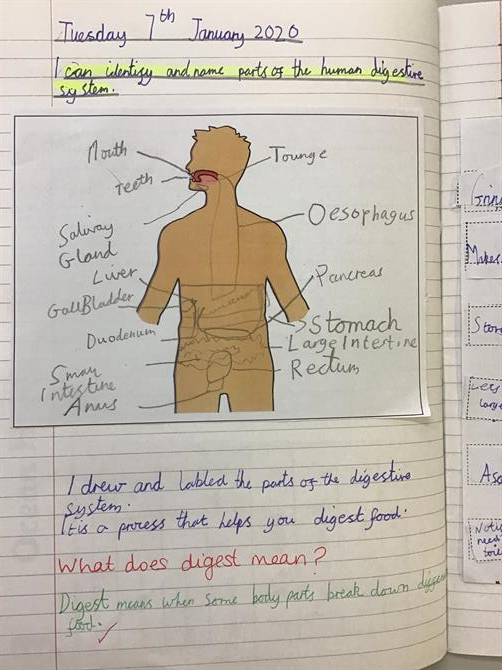 Tuesday 7th January 2020
I can identify and name parts of the human digestive
system.
Mouth
Tounge
Teeth
Oesophagus
Salivary
Gland
Liver
Pancreas
Gallbladder
Stomach
Duodenum
Large Intertine
Small
Intestine
Rectum
Anus
I drew and labled the parts of the digestive
system.
It is a process that helps you digest food.
What does digest mean?
Digest means when some body parts break down
food.
Makes